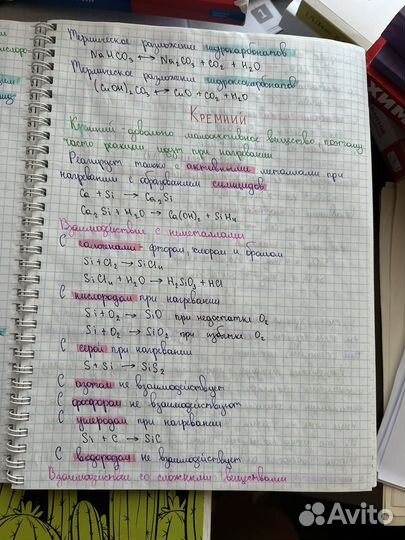 Термическое разложение гидрокарбонатов
NaHCO₃ ⟷ Na₂CO₃ + CO₂ + H₂O
Термическое разложение гидроксокарбонатов
(CuOH)₂CO₃ ⟷ CuO + CO₂ + H₂O
КРЕМНИЙ
Кремний - довольно малоактивное вещество, поэтому
часто реакции идут при нагревании
Реагирует только с активными металлами при
нагревании с образованием силицидов
Ca + Si → Ca₂Si
Ca₂Si + H₂O → Ca(OH)₂ + SiH₄
Взаимодействие с неметаллами
С галогенами - фтором, хлором и бромом
Si + Cl₂ → SiCl₄
SiCl₄ + H₂O → H₂SiO₃ + HCl
С кислородом при нагревании
Si + O₂ → SiO при недостатке O₂
Si + O₂ → SiO₂ при избытке O₂
С серой при нагревании
S + Si → SiS₂
С азотом не взаимодействует
С фосфором не взаимодействуют
С углеродом при нагревании
Si + C → SiC
С водородом не взаимодействует
Взаимодействие со сложными веществами
Avito